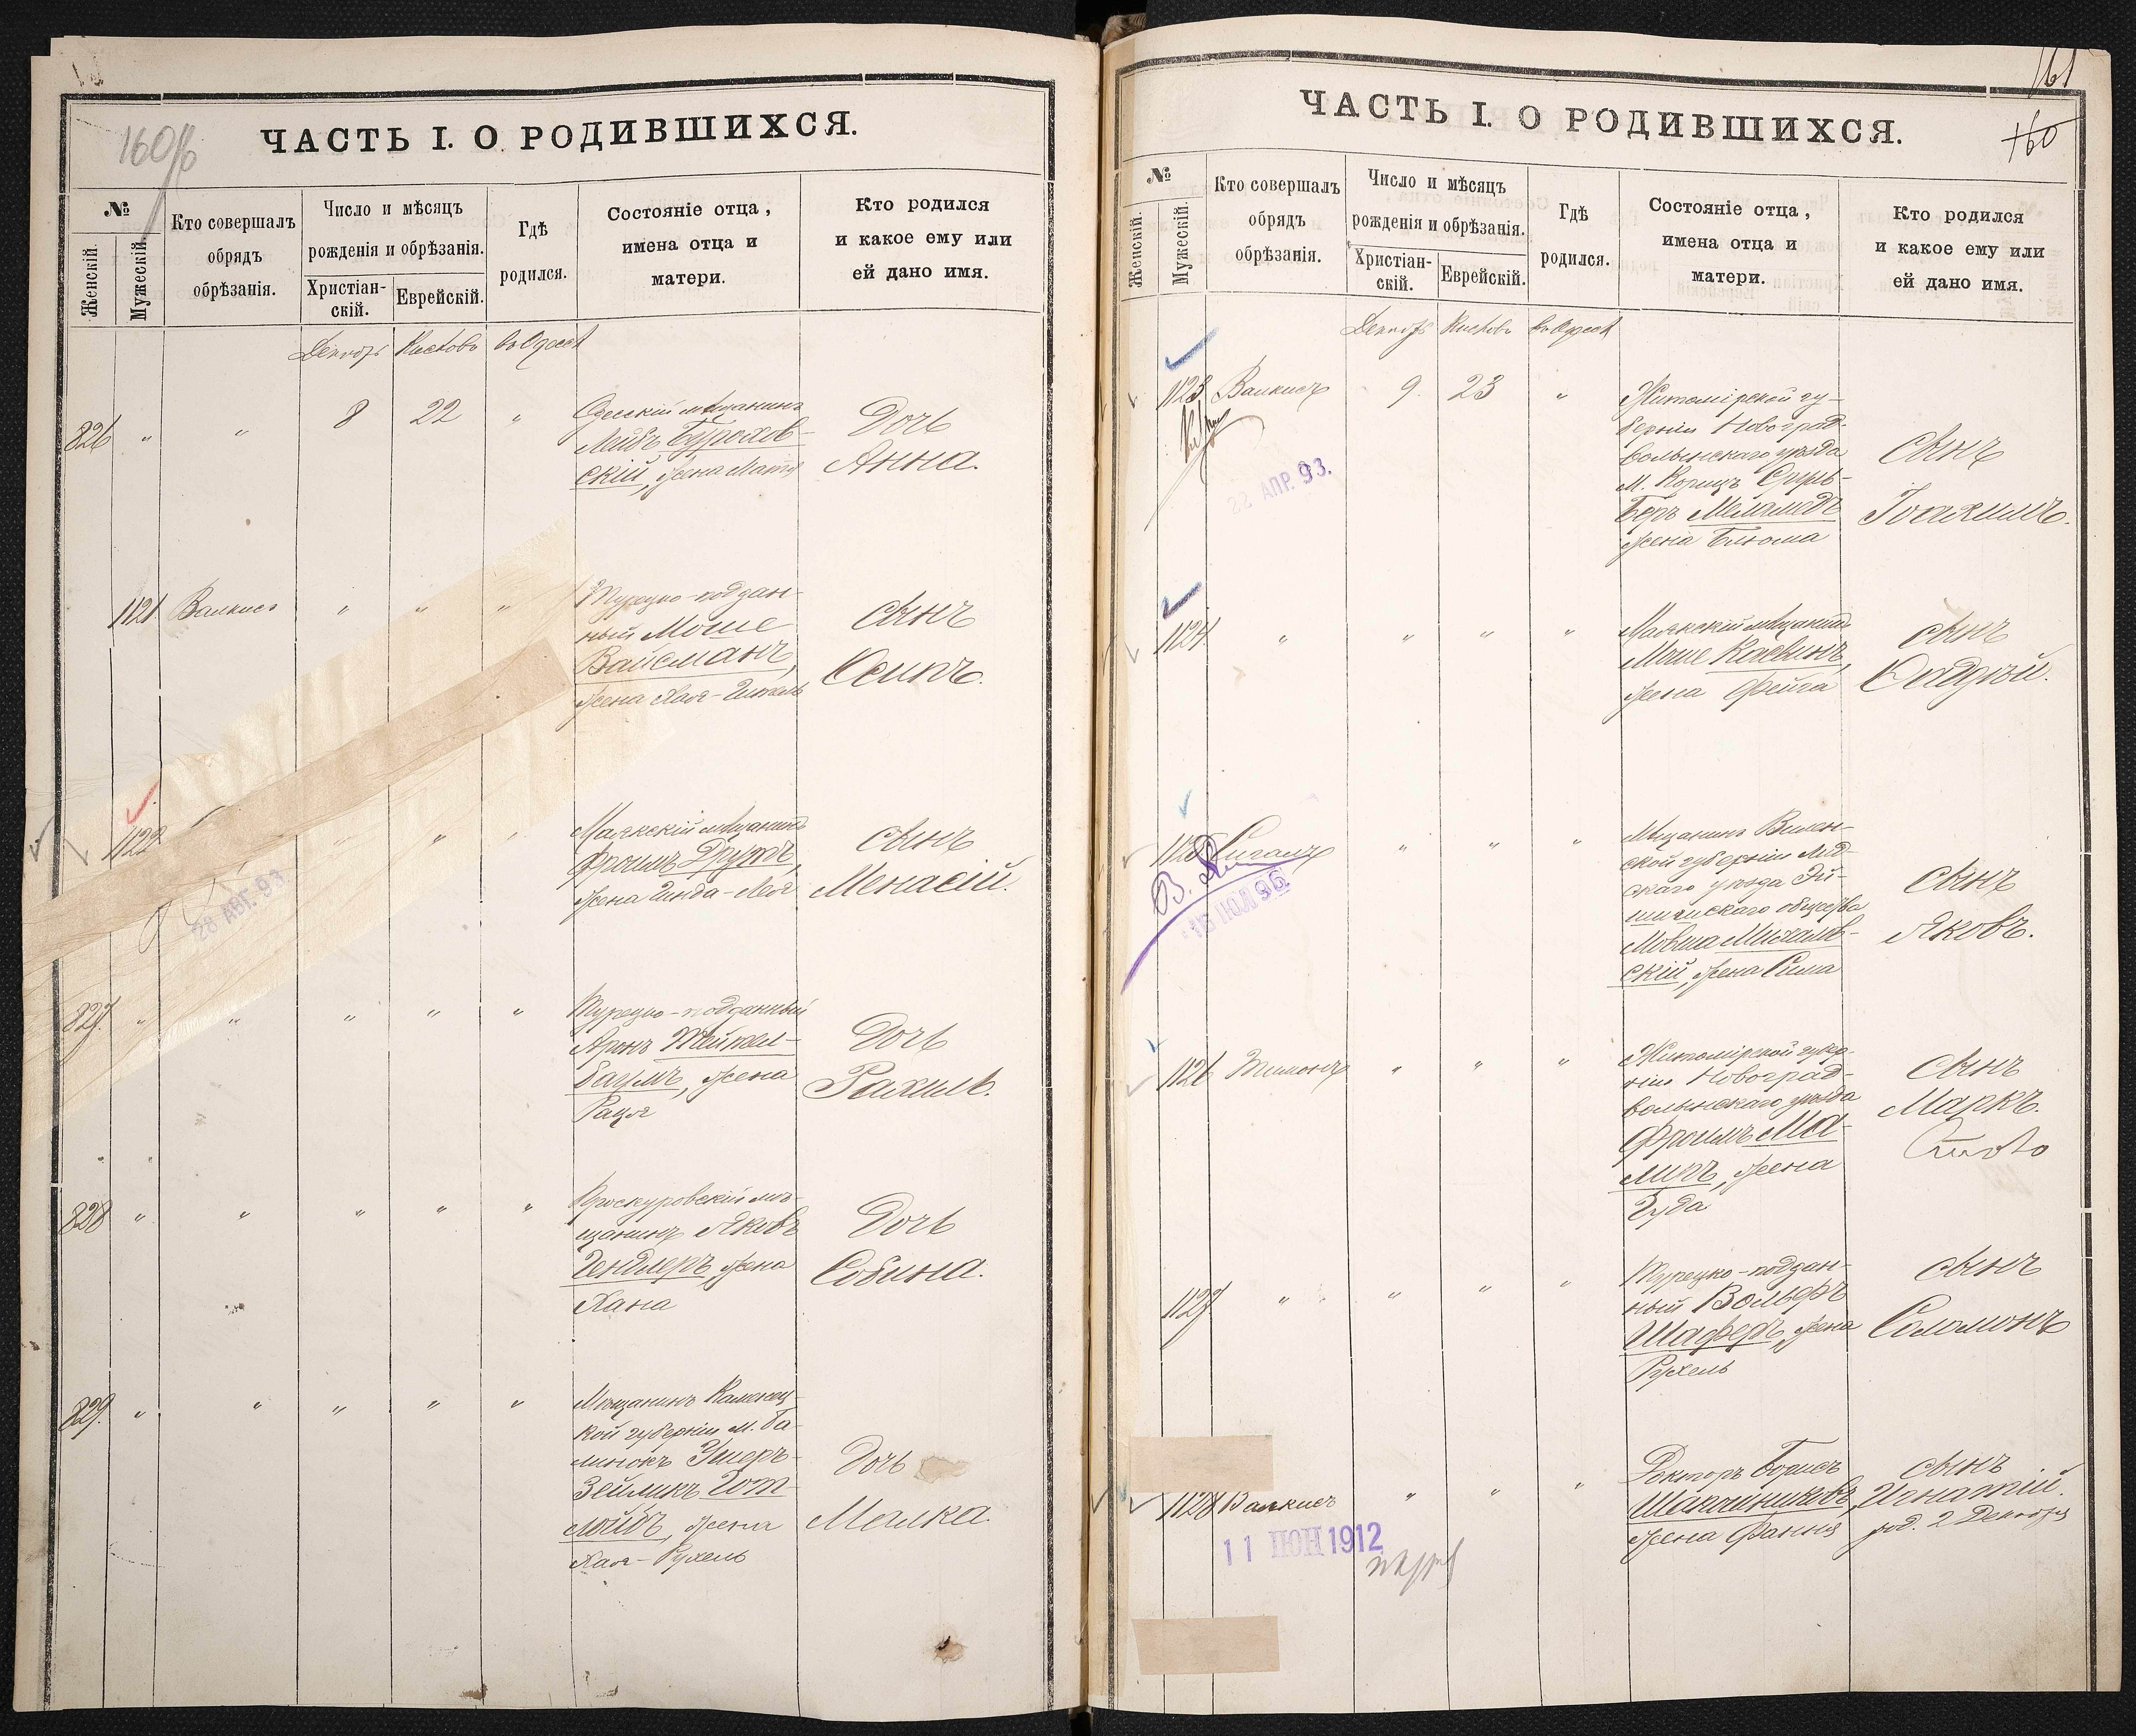 160об
ЧАСТЬ I. О РОДИВШИХСЯ.
№
Женскій.
Мужескій.
Кто совершалъ
обрядъ
обрѣзанія.
Число и мѣсяцъ
рожденія и обрѣзанія.
Христіан-
скій.
Еврейскій.
Гдѣ
родился.
Состояніе отца,
имена отца и
матери.
Кто родился
и какое ему или
ей дано имя.
Декабрь Кислевъ въ Одессѣ
826 " " 8 22 "
Одесскій мѣщанинъ
Лейбъ Бурахов-
скій, жена
Дочь
Анна.
1121 Валкисъ " " "
Турецко-поддан-
ный Моше
Вайсманъ,
жена Хая-
сынъ
Осипъ.
1122 " " "
Маякскій мѣщанинъ
Фроимъ Друтъ,
жена Гинда-Лея
сынъ
Менасій.
28 АВГ. 93
827. " " " " "
Турецко-подданный
Аронъ Тейтел-
баумъ, жена
Рация
Дочь
Рахиль.
828 " " " " "
Проскуровскій мѣ-
щанинъ Яковъ
Гендлеръ, жена
Хана
Дочь
Собина.
829. " " " " "
Мѣщанинъ Каменец-
кой губерніи м. Ба-
линокъ Ушеръ-
Зейликъ Гот-
лойбъ, жена
Хая-Рухель
Дочь
Малка.
161
160
ЧАСТЬ I. О РОДИВШИХСЯ.
№
Женскій.
Мужескій.
Кто совершалъ
обрядъ
обрѣзанія.
Число и мѣсяцъ
рожденія и обрѣзанія.
Христіан-
скій.
Еврейскій.
Гдѣ
родился.
Состояніе отца,
имена отца и
матери.
Кто родился
и какое ему или
ей дано имя.
Декабрь Кислевъ въ Одессѣ
1123 Валкисъ 9. 23 "
Житомірской гу-
берніи Новоград-
волынскаго уѣзда
м. Корицъ Сруль-
Беръ Меламедъ
жена Блюма
сынъ
Іоахимъ.
22 АПР. 93.
1124 " " " "
Маякскій мѣщанинъ
Моше Касвинъ,
жена Фейга
сынъ
1125 Сигалъ " " "
Мѣщанинъ Вилен-
ской губерніи Лид-
скаго уѣзда Эй-
шишскаго общества
Мовша Михалов-
скій, жена Сима
сынъ
Яковъ.
16 ИЮЛ 96
1126 Тимонъ " " "
Житомірской губер-
ніи Новоград-
волынскаго уѣзда
Фроимъ Ма-
лиръ, жена
сынъ
Маркъ.
1127 " " " "
Турецко-поддан-
ный Вольфъ
Шаферъ, жена
Рухель
сынъ
Соломонъ
1128 Валкисъ " " "
Докторъ Борисъ
жена Фання
сынъ
Игнатій.
род. 2 Декабря
11 ИЮН 1912